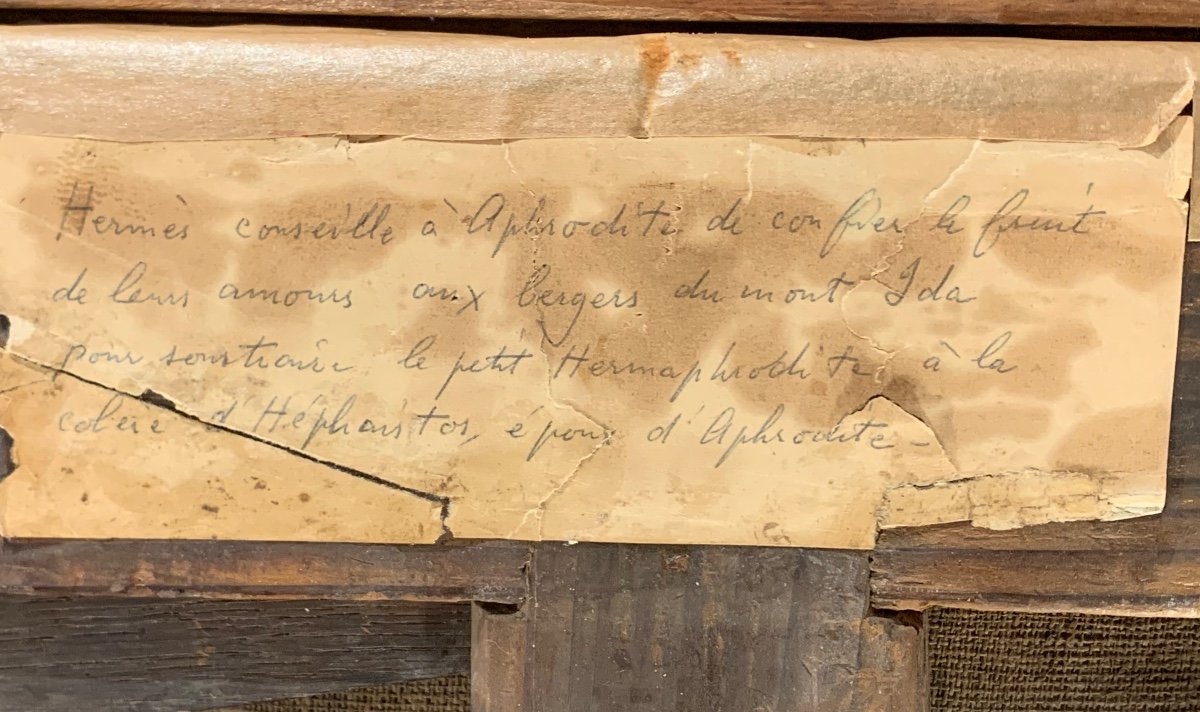 Hermès conseille à Aphrodite de confier le fruit
de leurs amours aux bergers du mont Ida
pour soustraire le petit Hermaphrodite à la
colère d'Héphaïstos, époux d'Aphrodite -